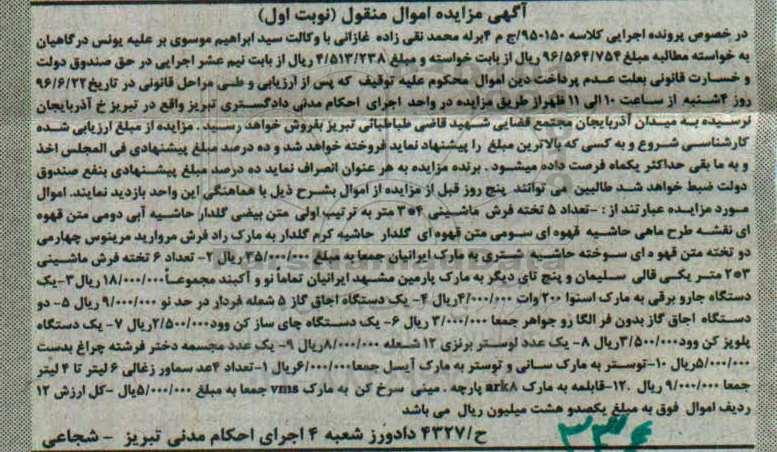 آگهی مزایده اموال منقول (نوبت اول)
در خصوص پرونده اجرایی کلاسه ۹۵۰۱۵۰/ج م ۴برله محمد نقی زاده غازانی با وکالت سید ابراهیم موسوی بر علیه یونس درگاهیان
به خواسته مطالبه مبلغ ۹۶/۵۶۴/۷۵۴ ریال از بابت خواسته و مبلغ ۴/۵۱۳/۲۳۸ ریال از بابت نیم عشر اجرایی در حق صندوق دولت
و خسارت قانونی بعلت عدم پرداخت دین اموال محکوم علیه توقیف که پس از ارزیابی و طی مراحل قانونی در تاریخ۹۶/۶/۲۲
روز ۴شنبه از ساعت ۱۰ الی ۱۱ ظهراز طریق مزایده در واحد اجرای احکام مدنی دادگستری تبریز واقع در تبریز خ آذربایجان
نرسیده به میدان آذربایجان مجتمع قضایی شهید قاضی طباطبائی تبریز بفروش خواهد رسید . مزایده از مبلغ ارزیابی شده
کارشناسی شروع و به کسی که بالاترین مبلغ را پیشنهاد نماید فروخته خواهد شد و ده درصد مبلغ پیشنهادی فی المجلس اخذ
و به ما بقی حداکثر یکماه فرصت داده میشود . برنده مزایده به هر عنوان انصراف نماید ده درصد مبلغ پیشنهادی بنفع صندوق
دولت ضبط خواهد شد طالبین می توانند پنج روز قبل از مزایده از اموال بشرح ذیل با هماهنگی این واحد بازدید نمایند. اموال
مورد مزایده عبارتند از : -تعداد ۵ تخته فرش ماشینی ۴*۳ متر به ترتیب اولی متن بیضی گلدار حاشیه آبی دومی متن قهوه
ای نقشه طرح ماهی حاشیه قهوه ای سومی متن قهوه ای گلدار حاشیه کرم گلدار به مارک راد فرش مروارید مرینوس چهارمی
دو تخته متن قهوه ای سوخته حاشیه شتری به مارک ایرانیان جمعا به مبلغ ۳۵/۰۰۰/۰۰۰ ریال ۲- تعداد ۶ تخته فرش ماشینی
۳*۲ متر یکی قالی سلیمان و پنج تای دیگر به مارک پارمین مشهد ایرانیان تماما نو و آکبند مجموعاً۱۸/۰۰۰/۰۰۰ریال ۳-یک
دستگاه جارو برقی به مارک اسنوا ۲۰۰ وات ۴/۰۰۰/۰۰۰ریال ۴- یک دستگاه اجاق گاز ۵ شعله فردار در حد نو ۹/۰۰۰/۰۰۰ ریال ۵- دو
دستگاه اجاق گاز بدون فر الگا رو جواهر جمعا ۳/۰۰۰/۰۰۰ ریال ۶- یک دستگاه چای ساز کن وود۲/۵۰۰/۰۰۰ریال ۷- یک دستگاه
پلوپز کن وود۳/۵۰۰/۰۰۰ریال ۸- یک عدد لوستر برنزی ۱۲ شعله ۸/۰۰۰/۰۰۰ریال ۹- یک عدد مجسمه دختر فرشته چراغ بدست
۵/۰۰۰/۰۰۰ریال ۱۰-توستر به مارک سانی و توستر به مارک آیسل جمعا۶/۰۰۰/۰۰۰ریال ۱-تعداد ۴عد سماور زغالی ۶ لیتر تا ۴ لیتر
جمعا ۹/۰۰۰/۰۰۰ ریال .۱۲-قابلمه به مارک ark۸ پارچه . مینی سرخ کن به مارک vms جمعا به مبلغ ۵/۰۰۰/۰۰۰یال -کل ارزش ۱۲
ردیف اموال فوق به مبلغ یکصدو هشت میلیون ریال می باشد
ح/۴۳۲۷ دادورز شعبه ۴ اجرای احکام مدنی تبریز - شجاعی